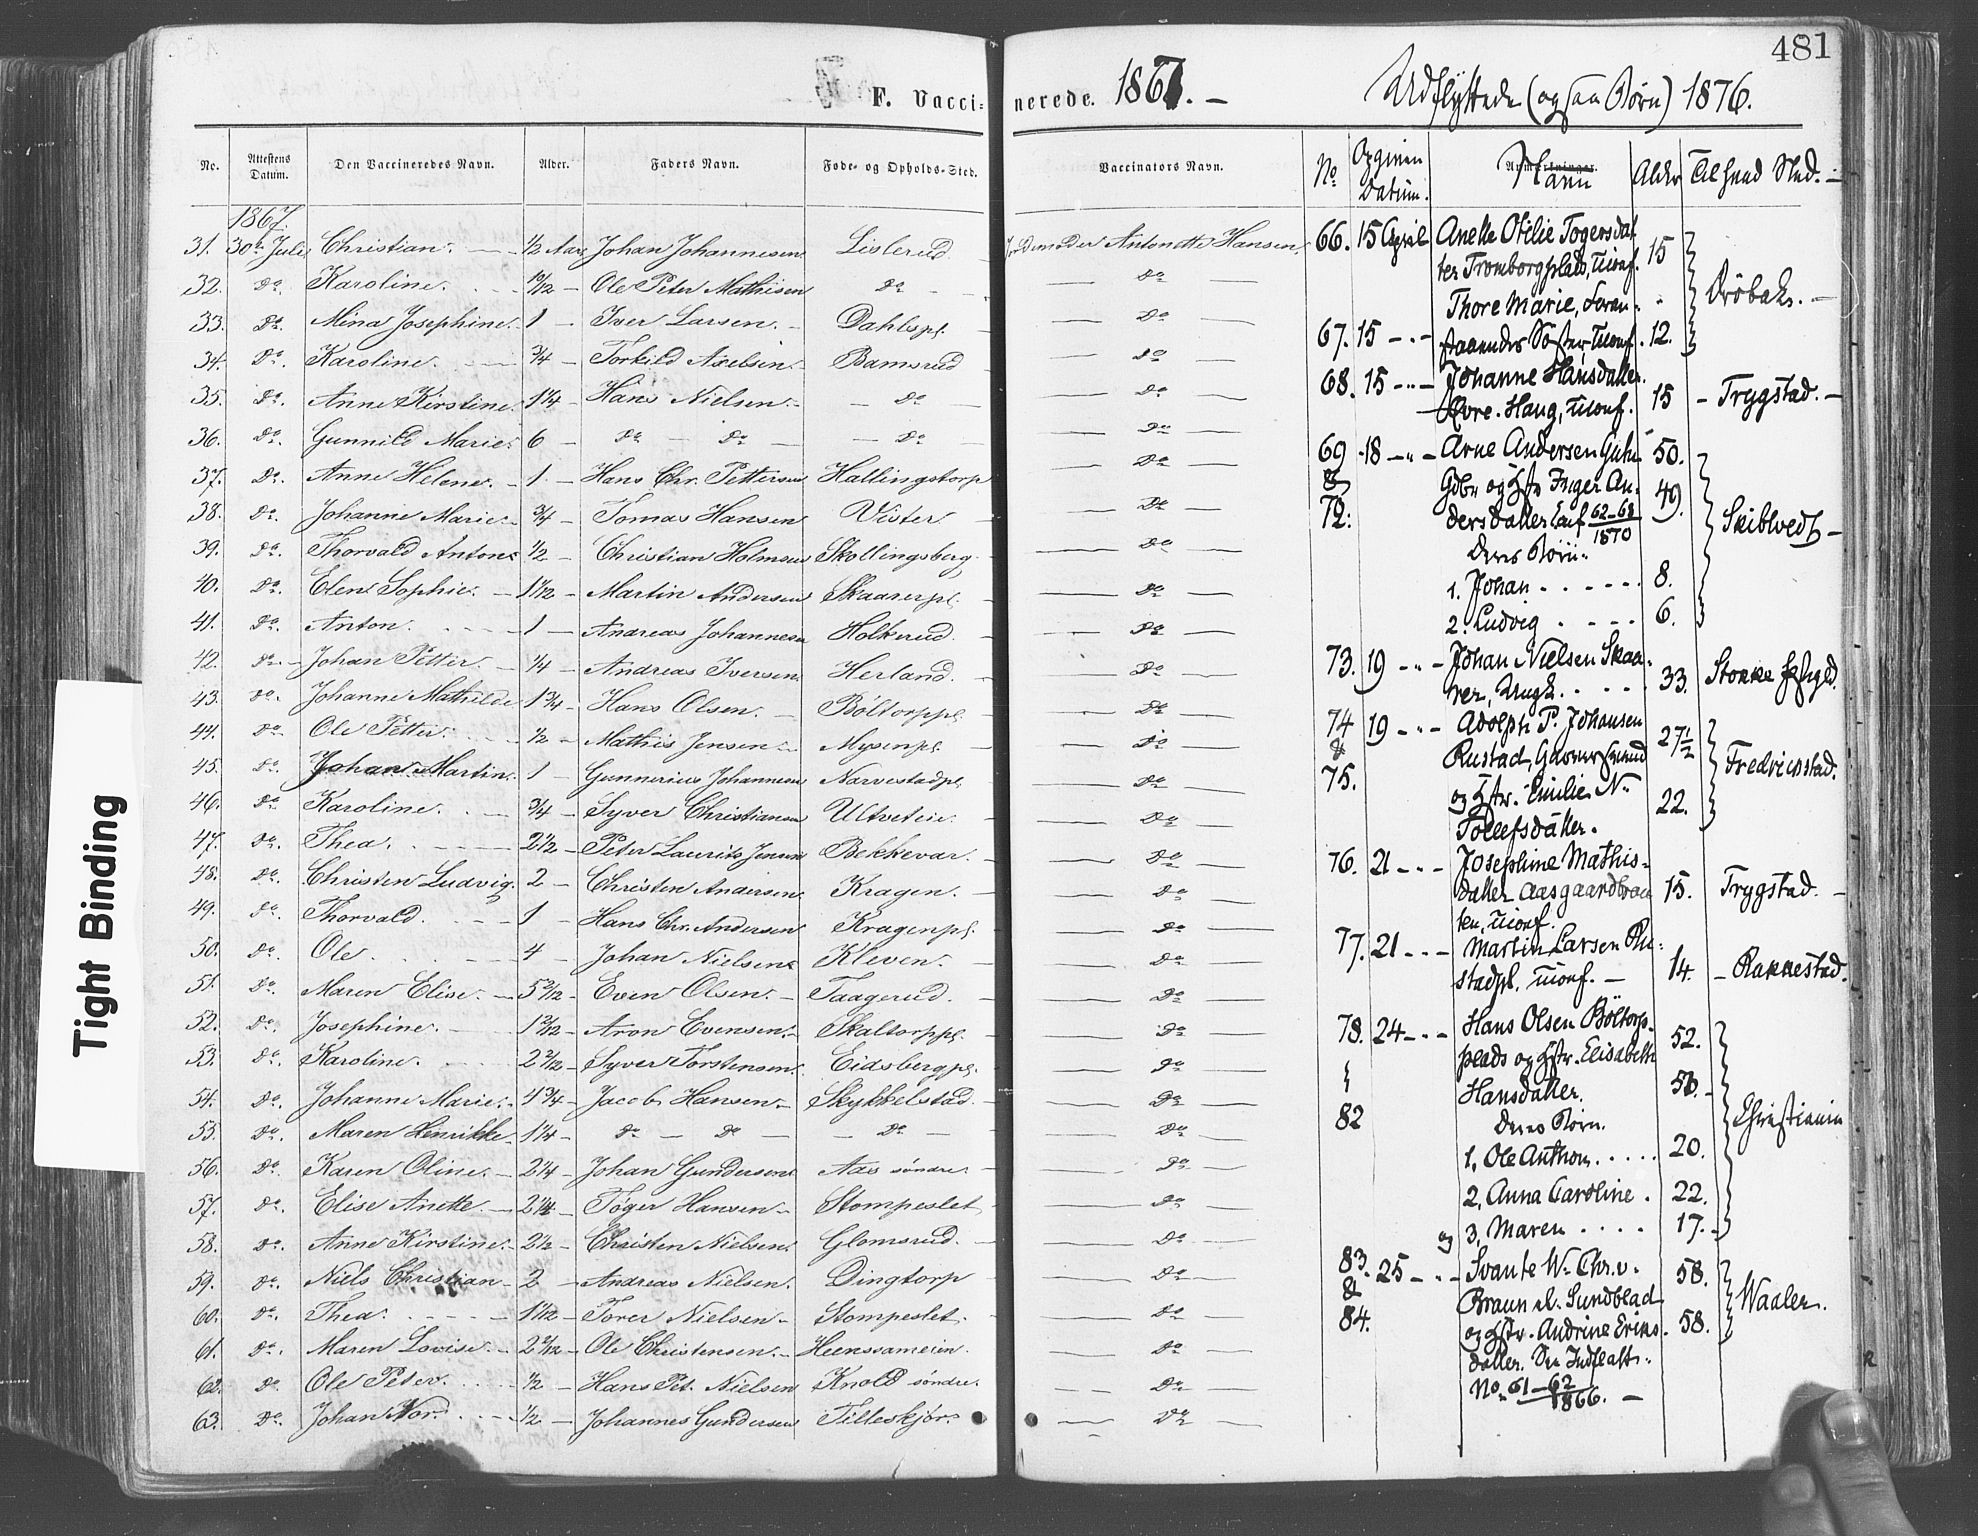 481
F. Vaccinerede. 1867. —
Udflyttede (ogsaa Børn) 1876.
No.
Attestens Datum.
Den Vaccineredes Navn.
Alder.
Faders Navn.
Føde- og Opholds-Sted.
Vaccinators Navn.
1867
31. 30te Juli Christian. ½ Aar Johan Johannesen Lislerud Jordemoder Antonette Hansen
32. Do. Karoline. 10/12 — Ole Peter Mathisen Do Do
33. Do. Mina Josephine. 1 — Iver Larsen. Dahlspl. Do
34. Do. Karoline. ¾ — Torkild Axelsen. Bamsrud Do
35. Do. Anne Kirstine. 1¼ — Hans Nielsen — Do — Do
36. Do. Gunnild Marie. 6 — Do — Do — Do — Do
37. Do. Anne Helene. 1 — Hans Chr. Pettersen Hallingstorp Do
38. Do. Johanne Marie. ¾ — Tomas Hansen Vister Do
39. Do. Thorvald Anton ½ — Christian Holmsen Skollingsberg Do
40. Do. Elen Sophie. 1½ — Martin Andersen Skaarerpl. Do
41. Do. Anton. 1 — Andreas Johannesen Holkerud. Do
42. Do. Johan Petter. ¼ — Andreas Iversen Herland. Do
43. Do. Johanne Mathilde 1¾ — Hans Olsen. Böltorppl. Do
44. Do. Ole Petter. ½ — Mathis Jensen Mysenpl. Do
45. Do. Johan Martin. 1 — Gunnerius Johannesen Narvestadpl. Do
46. Do. Karoline. ¾ — Syver Christiansen Ultveteie. Do
47. Do. Thea. 2½ — Peter Laurits Jensen Bekkevar. Do
48. Do. Christen Ludvig. 2 — Christen Andersen Kragen. Do
49. Do. Thorvald. 1 — Hans Chr. Andersen Kragenpl. Do
50. Do. Ole. 4 — Johan Nielsen Kleven. Do
51. Do. Maren Elise. 5 2/12 — Even Olsen. Taagerud. Do
52. Do. Josephine. 1 2/12 — Aron Evensen. Skaltorppl. Do
53. Do. Karoline. 2 2/12 — Syver Torstensen. Eidsbergpl. Do
54. Do. Johanne Marie. 4¾ — Jacob Hansen Skykkelstad. Do
55. Do. Maren Henrikke. 1¼ — Do — Do — Do — Do
56. Do. Karen Oline. 2¼ — Johan Gundersen Aas søndre. Do
57. Do. Elise Anette. 2¼ — Töger Hansen Stompeslet Do
58. Do. Anne Kirstine. 2½ — Christen Nielsen. Glomsrud. Do
59. Do. Niels Christian 2 — Andreas Nielsen. Dingtorp Do
60. Do. Thea. 1 1/12 — Torer Nielsen Stompeslet. Do
61. Do. Maren Lovise. 2 2/12 — Ole Christensen. Heensvameien. Do
62. Do. Ole Peter. ½ — Hans Pet. Nielsen Knold søndre. Do
63. Do. Johan Nord. ½ — Johannes Gundersen Tilleskjør. Do
No
Opgiven Datum.
Navn
Alder
Tilhved Sted.
66. 15 April Anette Otilie Togersdat-
ter Tromborgplads, Uconf. 15
Thore Marie, Foran- Drøbak.
67. 15 — " — staaendes Søster, Uconf. 12.
68. 15 — " — Johanne Hansdatter.
Øvre. Haug, Uconf. 15 — Trygstad. —
69 18 — " — Arne Andersen 50.
& Gdbr og Hstr Inger An- 49.
72. dersdatter 62–68/1870 Skibtvedt —
Deres Børn.
1. Johan . . . . . . 8.
2. Ludvig . . . . . 6.
73. 19 — " — Johan Nielsen Skaa-
rer, Ungk. . . . . 33. Stokke
74 19 — " — Adolph P. Johansen 27½
& Rustad,
75. og Hstr. Emilie N. 22. Fredricsstad.
Tollefsdatter.
76. 21 — " — Josephine Mathis-
datter Aasgaardbraa- 15. Trygstad. —
ten, Uconf.
77. 21 — — Martin Larsen Ru-
stadpl. Uconf. — 14. — Rakkestad.
78. 24 — " — Hans Olsen Böltorp- 52.
plads og Hstr. Elisabeth
Hansdatter. 56.
82 Deres Børn. Christiania
1. Ole Anthon . . . . . 20.
2, Anna Caroline . 22.
og 3, Maren . . . . 17.
83. 25 — " — Svante W. Chr. v. 58.
& Braun Sundblad Waaler.
84. og Hstr. Andrine Eriks- 58.
datter. Se Indflatt.
No. 61–62/1866. —
Tight Binding